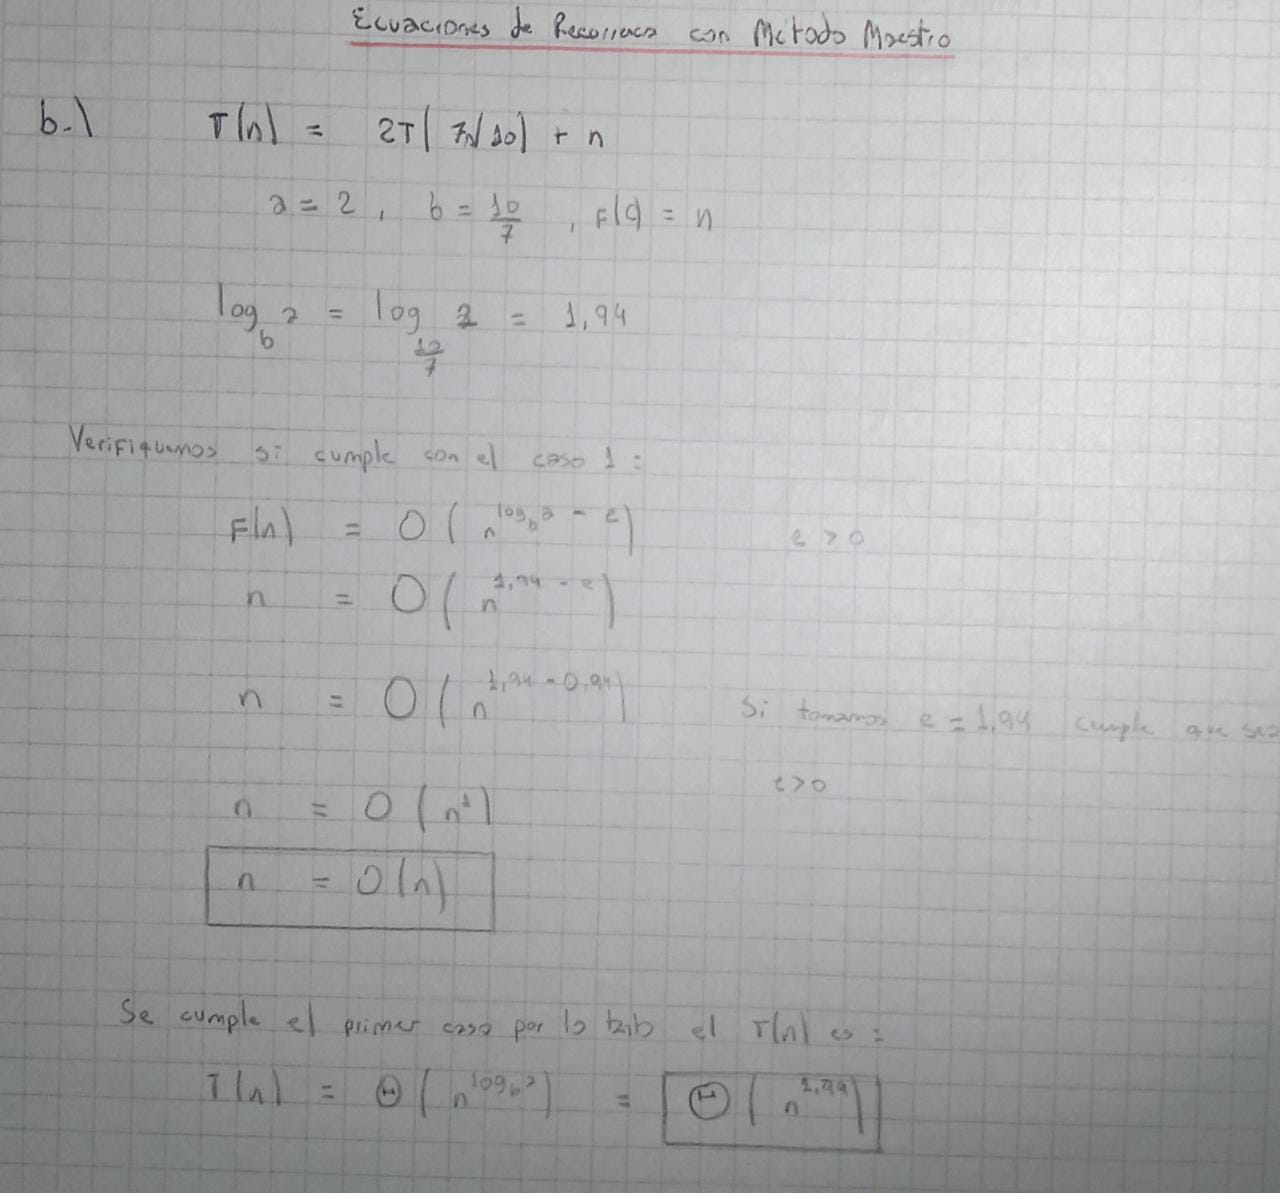 Ecuaciones de Recorriaca con Método Maestro
b.) T(n) = 2T(7n/10) + n
a = 2, b = 10/7, F(c) = n
log_b a = log_{10/7} 2 = 1,94
Verifiquemos si cumple con el caso 1:
F(n) = O(n^{log_b a - e}) e > 0
n = O(n^{1,94 - e})
n = O(n^{1,94 - 0,94}) Si tomamos e = 1,94 cumple que sea
n = O(n^1) e > 0
n = O(n)
Se cumple el primer caso por lo tato el T(n) es:
T(n) = Θ(n^{log_b a}) = Θ(n^{1,94})